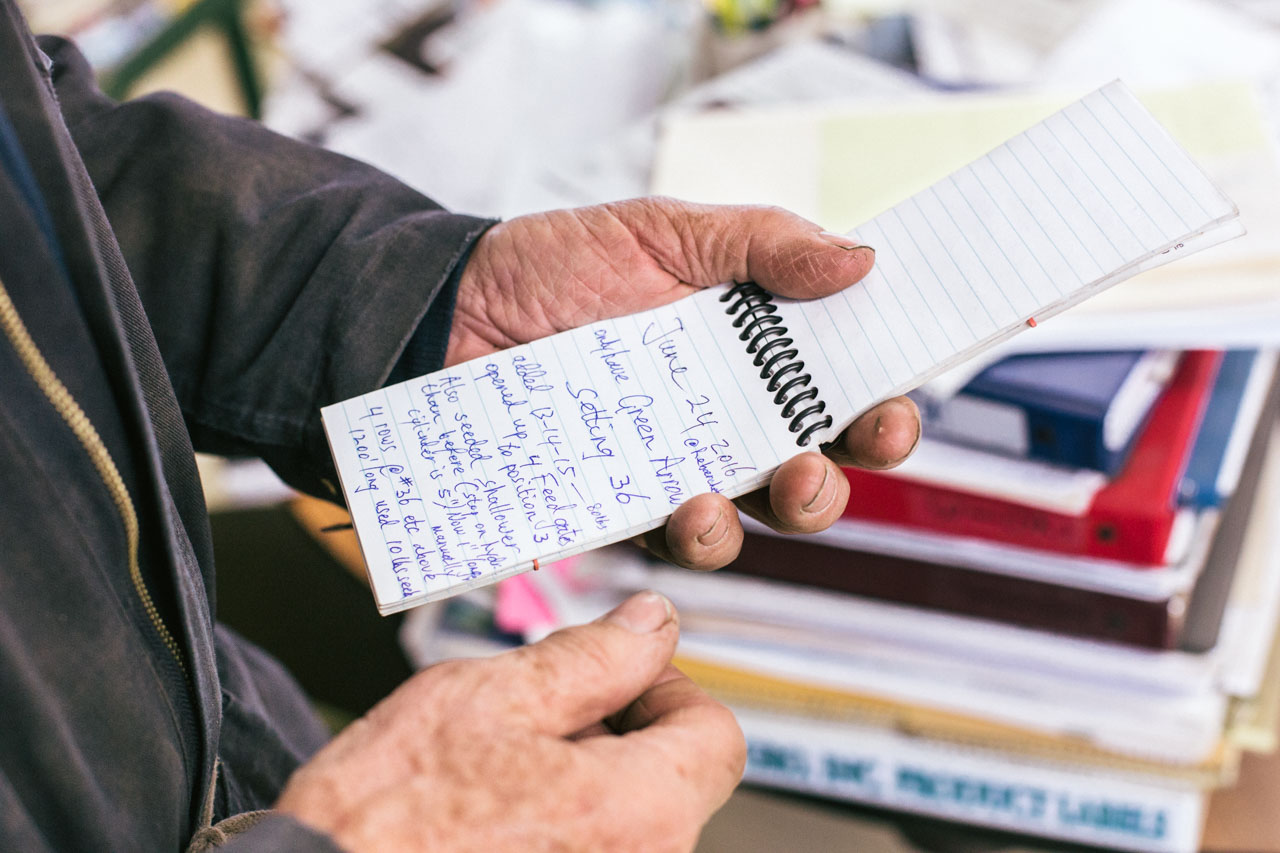 June 24 2016
only have Green Arrow
Setting 36
added 13-14-15 — 80 lbs
opened up to 4 Feed gate
position J3
Also seeded shallower
than before (stop on hydr.
cylinder is 5")
manually
4 rows @ #36 etc above
1200' long used 10 lbs seed
LABELS